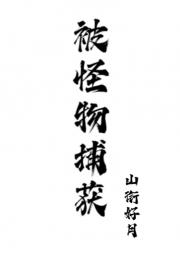 被怪物捕获
山衔好月